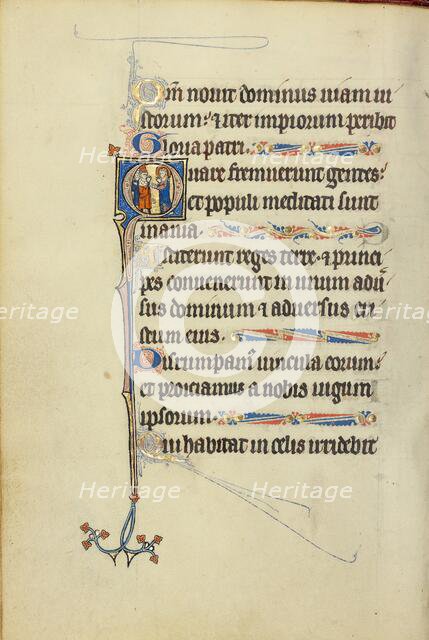 Qm̄ novit dominus viam iu
storum: & iter impiorum peribit
Gloria patri.
Quare fremuerunt gentes:
et populi meditati sunt
inania.
Astiterunt reges terre. & princi
pes convenerunt in unum adv̄
sus dominum & adversus cri
stum eius.
Dirumpam̄ vincula eorum:
et proiciamus a nobis iugum
ipsorum.
Qui habitat in celis irridebit
Heritage
Heritage
Heritage
Heritage
Heritage
Heritage